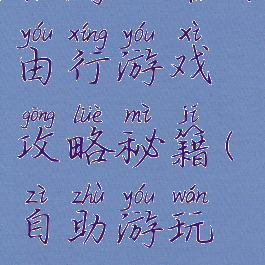 yóu xíng yóu xì
由行游戏
gōng lüè mì jí
攻略秘籍(
zì zhù yóu wán
自助游玩